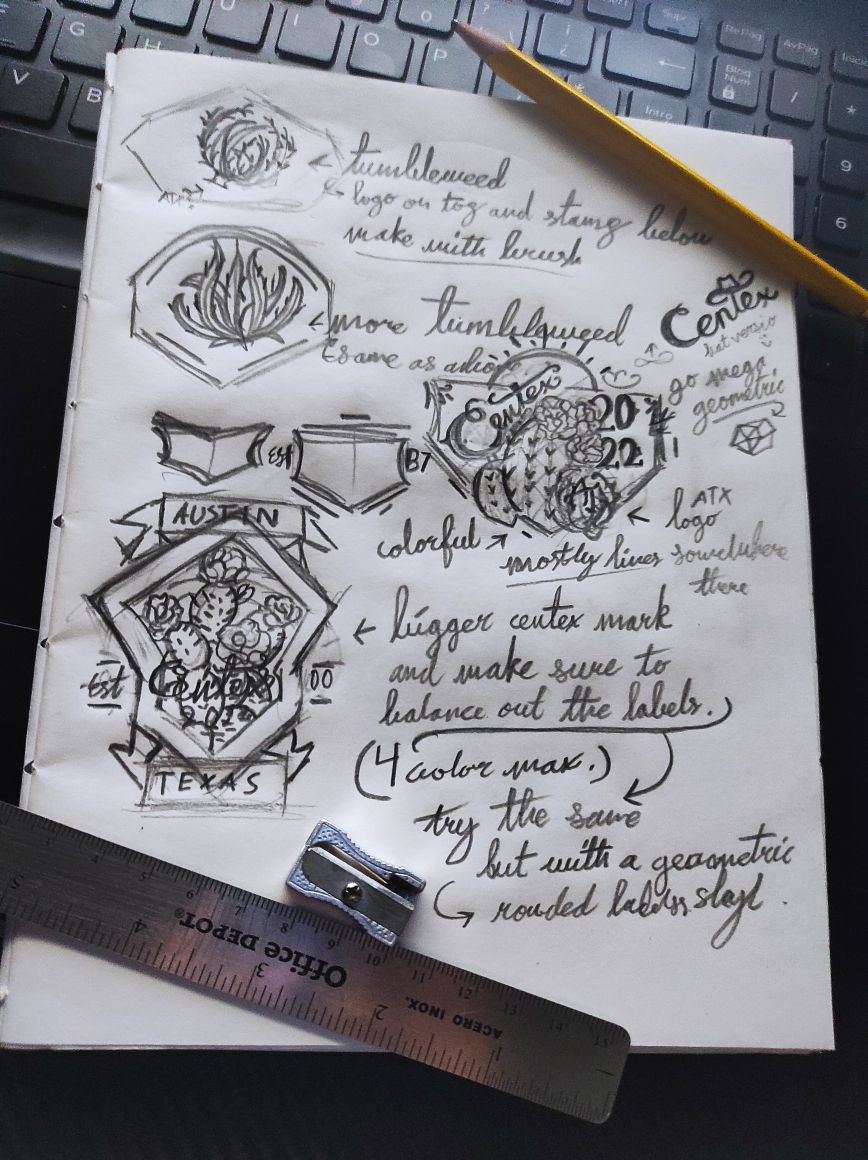 tumbleweed
logo on tag and stamp below
make with brush
more tumbleweed
(same as above
Centex
hat versio
go mega
geometric
Centex
20
22
Est
B7
ATX
logo
colorful
mostly lines somewhere
there
AUSTIN
Est
Centex
00
TEXAS
bigger centex mark
and make sure to
balance out the labels.)
(4 color max.)
try the same
but with a geometric
rouded
G
U
I
O
P
V
B
RePág
AvPág
Inicio
Bloq
Num
Intro
9
6
Office DEPOT®
ACERO INOX.
5
4
3
2
1
10
11
12
13
14
15